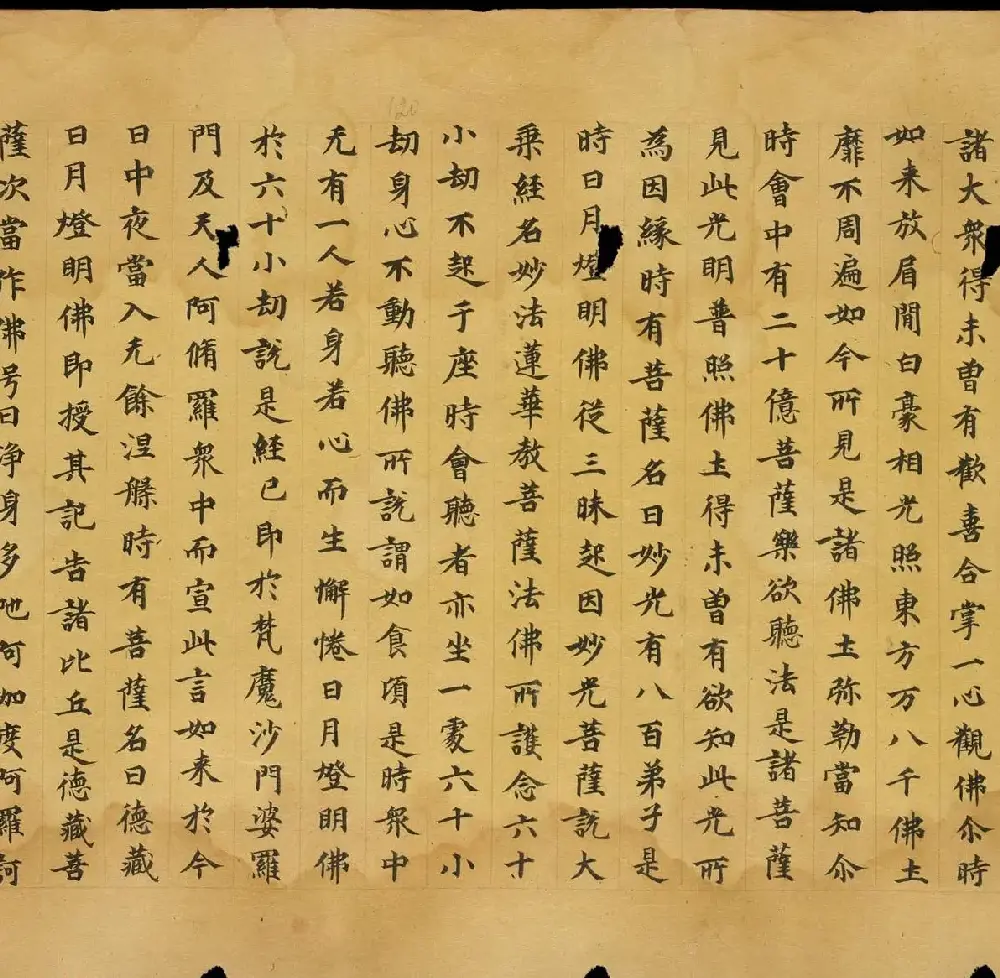 諸大衆得未曽有歡喜合掌一心觀佛尒時
如来放眉間白豪相光照東方万八千佛土
靡不周遍如今所見是諸佛土弥勒當知尒
時會中有二十億菩薩樂欲聽法是諸菩薩
見此光明普照佛土得未曽有欲知此光所
為因緣時有菩薩名曰妙光有八百弟子是
時日月燈明佛從三昧起因妙光菩薩說大
乗経名妙法蓮華教菩薩法佛所護念六十
小劫不起于座時會聽者亦坐一處六十小
劫身心不動聽佛所說謂如食頃是時衆中
无有一人若身若心而生懈惓日月燈明佛
於六十小劫說是経已即於梵魔沙門婆羅
門及天人阿脩羅衆中而宣此言如来於今
日中夜當入无餘涅槃時有菩薩名曰德藏
日月燈明佛即授其記告諸比丘是德藏菩
薩次當作佛号曰淨身多陁阿伽度阿羅訶
120